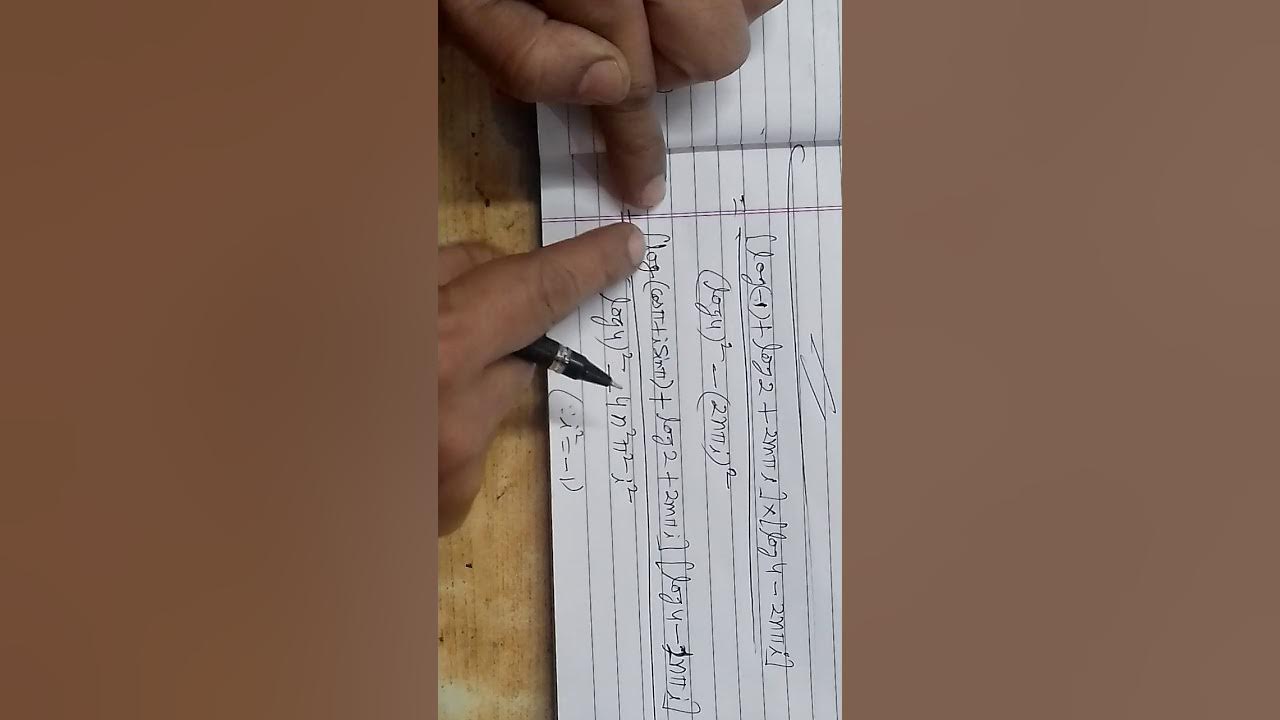 = [log(-1) + log 2 + 2mπi] × [log 4 - 2nπi]
(log 4)² - (2nπi)²
= [log(cosπ + i sinπ) + log 2 + 2mπi] [log 4 - 2nπi]
(log 4)² - 4n²π²i²
(∵ i² = -1)